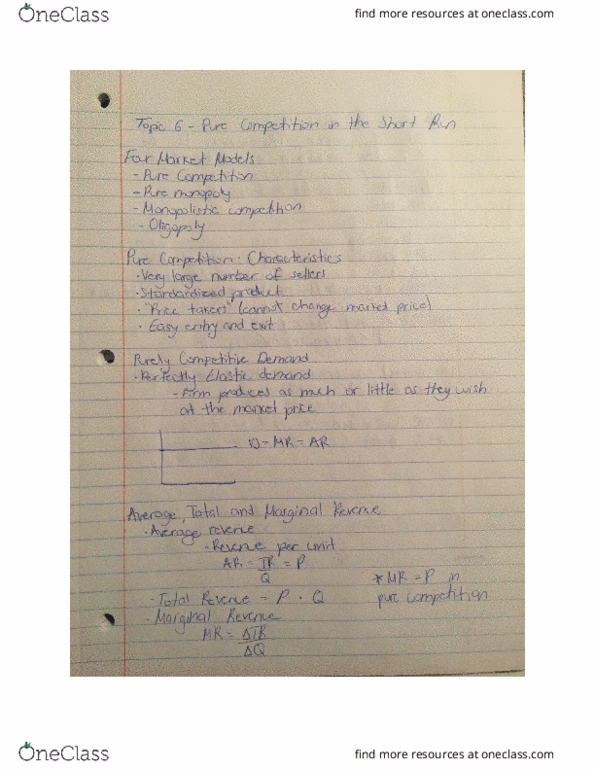 OneClass
find more resources at oneclass.com
Topic 6 - Pure Competition in the Short Run
Four Market Models
- Pure Competition
- Pure monopoly
- Monopolistic competition
- Oligopoly
Pure Competition: Characteristics
· Very large number of sellers
· Standardized product
· "Price takers" (cannot change market price)
· Easy entry and exit
Purely Competitive Demand
· Perfectly Elastic demand
- Firm produces as much or little as they wish
at the market price
D = MR = AR
Average, Total and Marginal Revenue
· Average revenue
· Revenue per unit
AR = TR = P
Q
· Total Revenue = P · Q
· Marginal Revenue
MR = ΔTR
ΔQ
* MR = P in
pure competition
OneClass
find more resources at oneclass.com